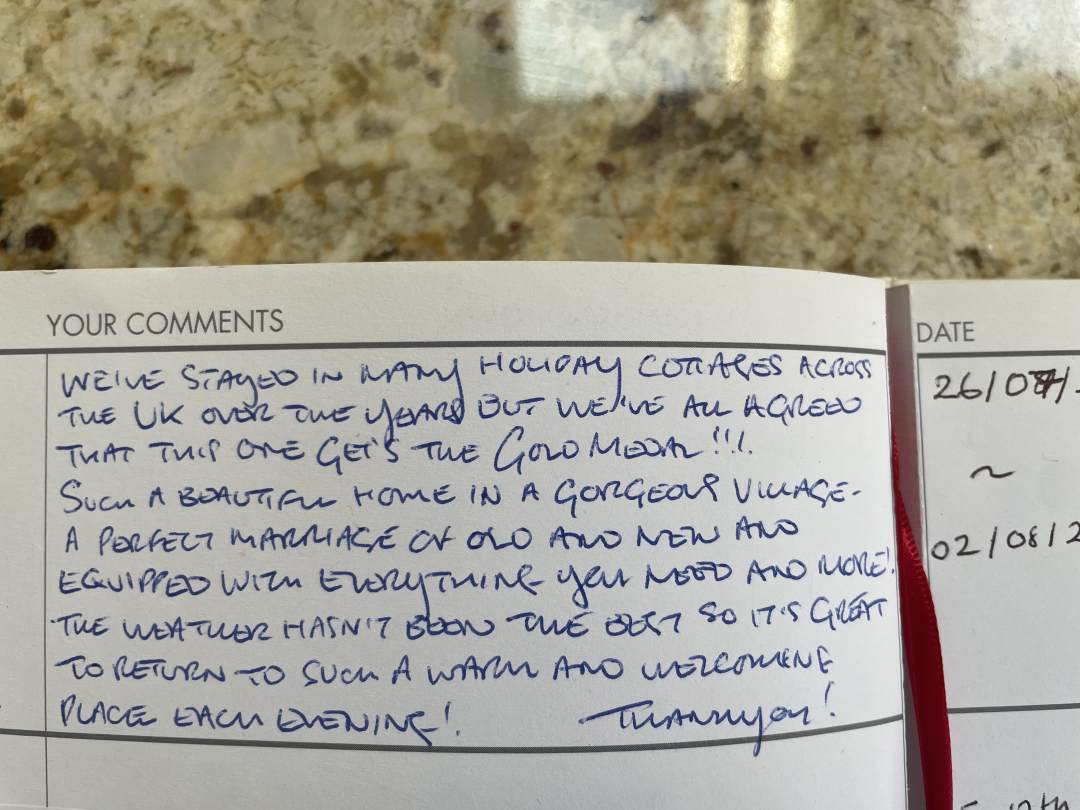 YOUR COMMENTS
DATE
WE'VE STAYED IN MANY HOLIDAY COTTAGES ACROSS
THE UK OVER THE YEARS BUT WE'VE ALL AGREED
THAT THIS ONE GET'S THE GOLD MEDAL!!!
SUCH A BEAUTIFUL HOME IN A GORGEOUS VILLAGE-
A PERFECT MARRIAGE OF OLD AND NEW AND
EQUIPPED WITH EVERYTHING YOU NEED AND MORE!
THE WEATHER HASN'T BEEN THE BEST SO IT'S GREAT
TO RETURN TO SUCH A WARM AND WELCOMING
PLACE EACH EVENING! THANK YOU!
26/07/
~
02/08/2